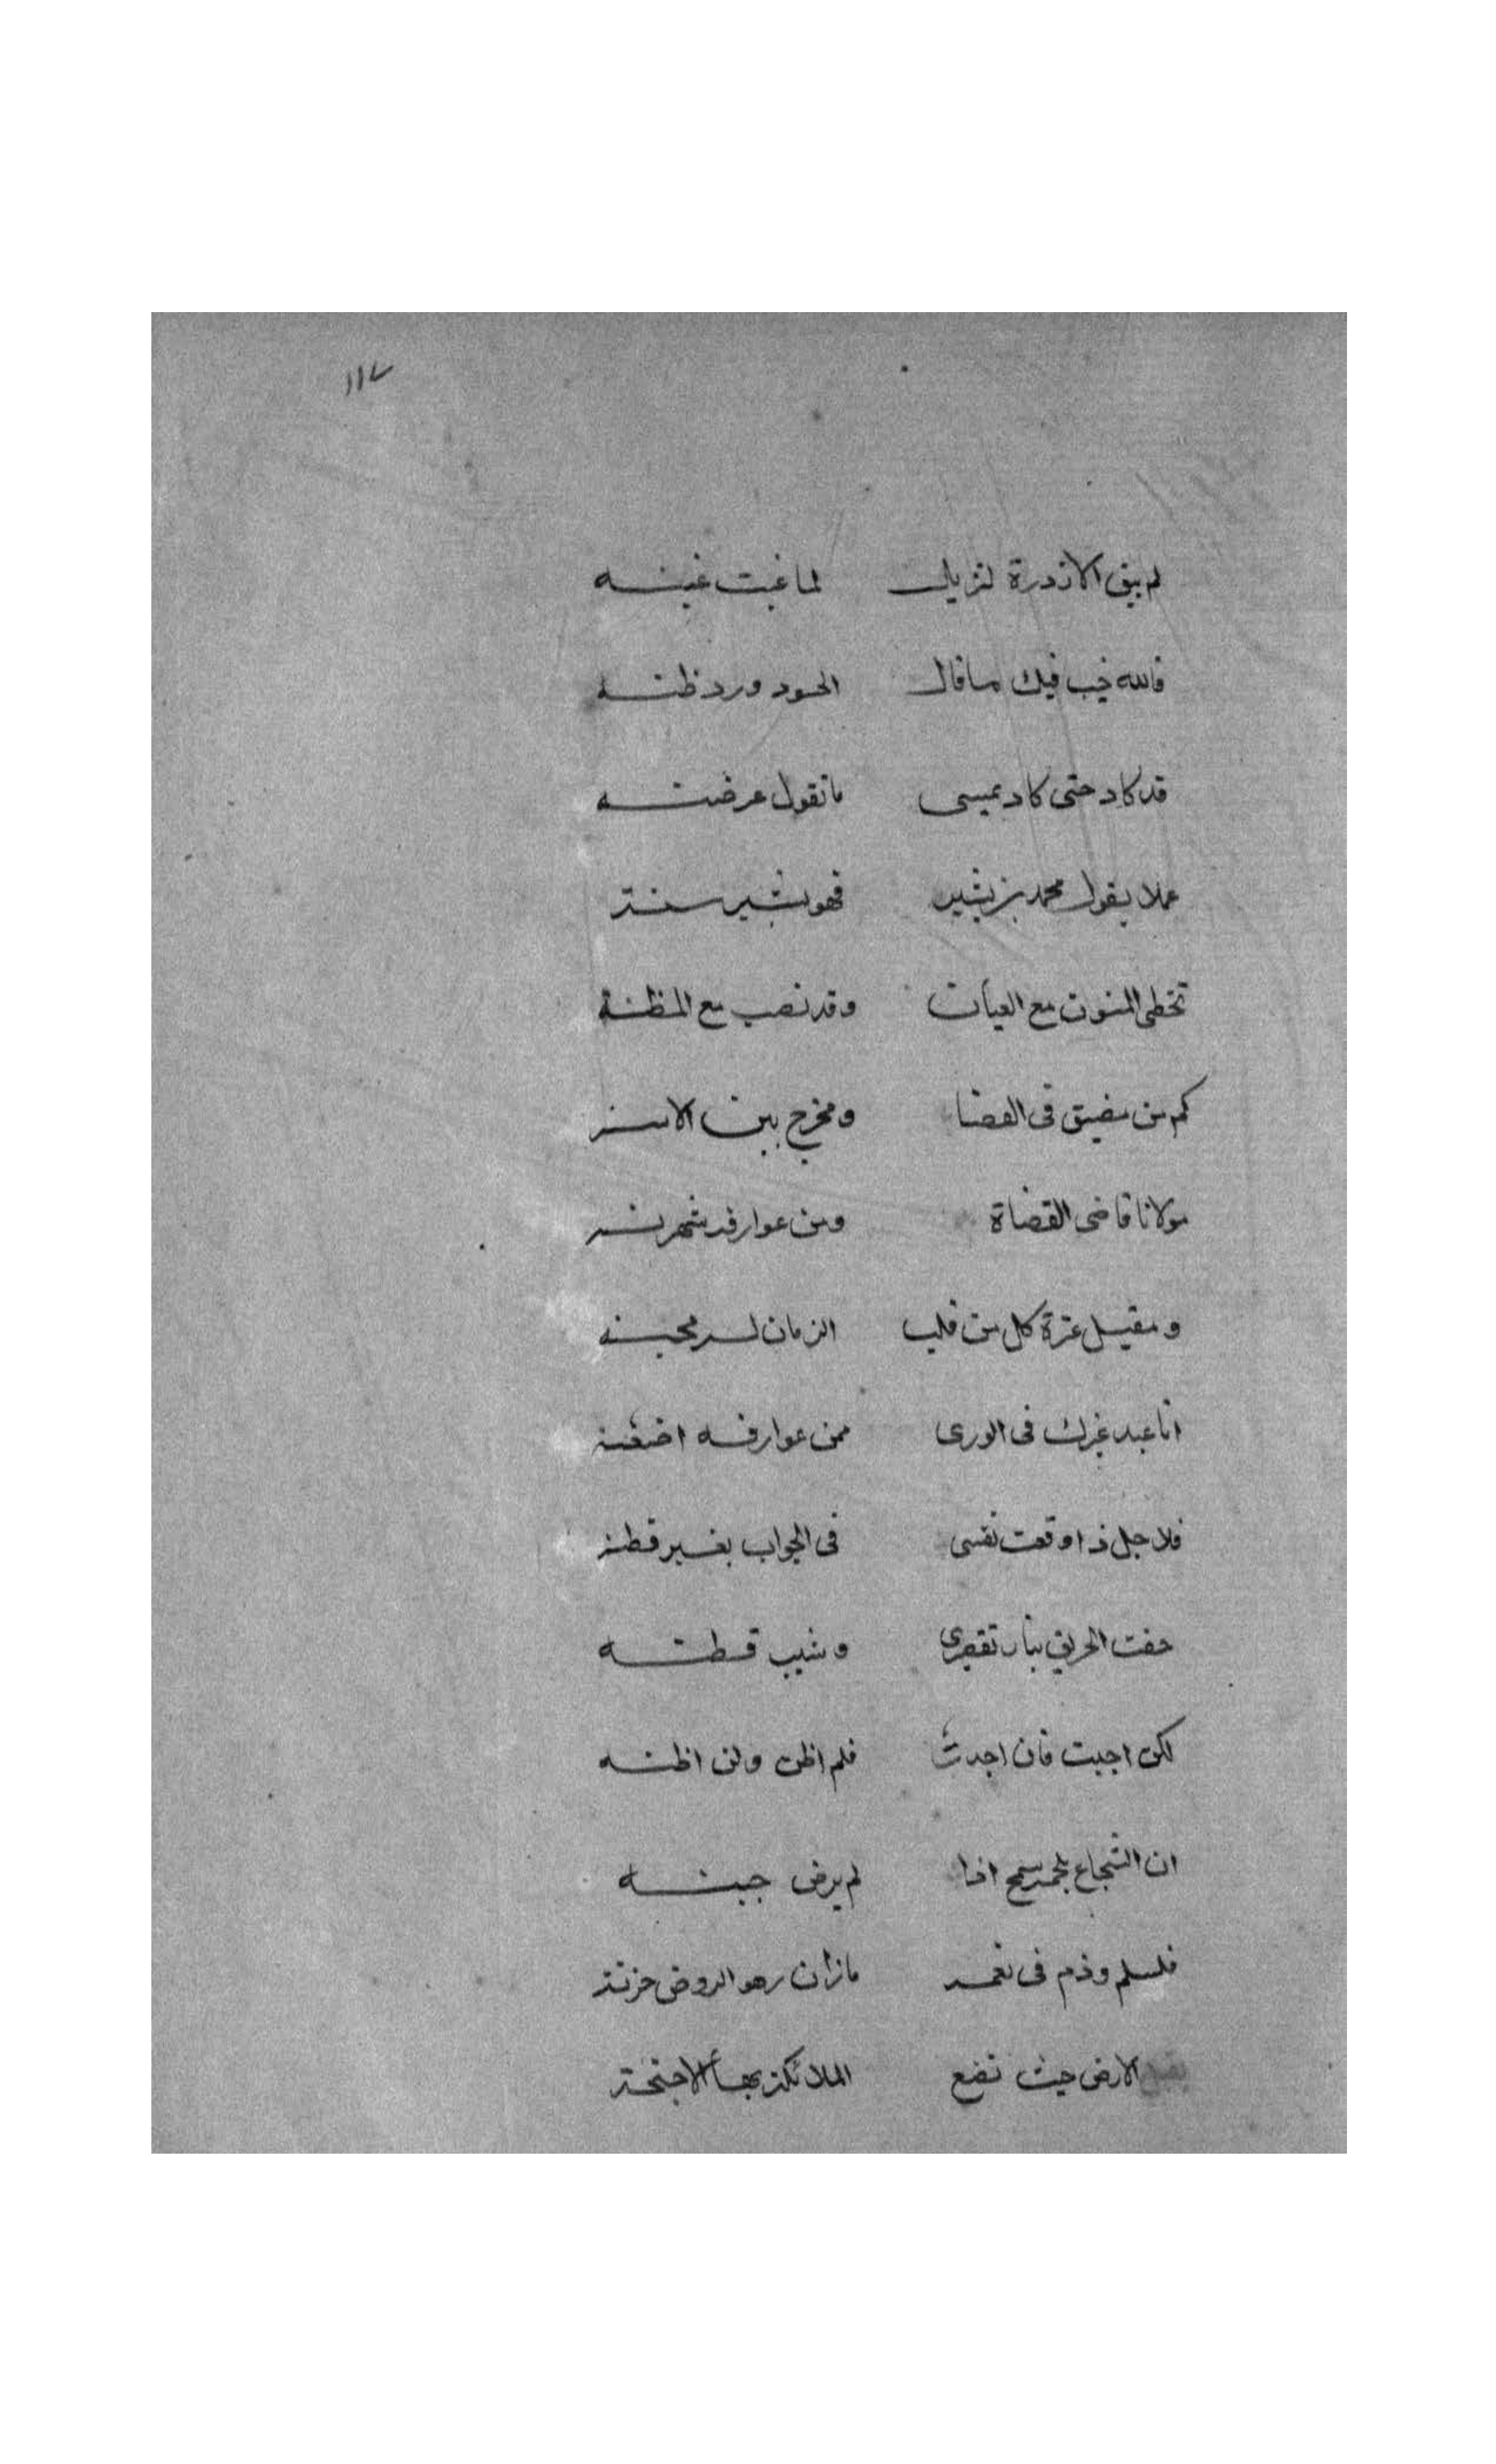 ١١٧
لم يبق الا زورة لنزيلك لما غبت غبنه
فالله خيب فيك ما قال الحسود ورد ظنه
قد كاد حتى كاد عيسى ما تقول عرضنه
عملا بقول محمد بن بشير فهو بشير سنة
تخطى المنون مع العيان وقد نصب مع المظنة
كم من مضيق فى الفضا ومخرج بين الاسنة
مولانا قاضى القضاة ومن عوارفه شهرنه
ومقيل عثرة كل من قلب الزمان له مجنه
انا عبد عزك فى الورى ممن عوارفه اضفنه
فلاجل ذا وقعت نفسى فى الجواب بغير فطنه
خفت الحريق بنار تقصيرى وشيب قطنه
لكن اجبت فان اجدت فلم اظن ولن اظنه
ان الشجاع سمح اذا لم يرض جبنه
فلسلم ودم فى نعمه ما زان زهو الروض حزنة
الارض حيث تضع الملائكة بها الاجنحة